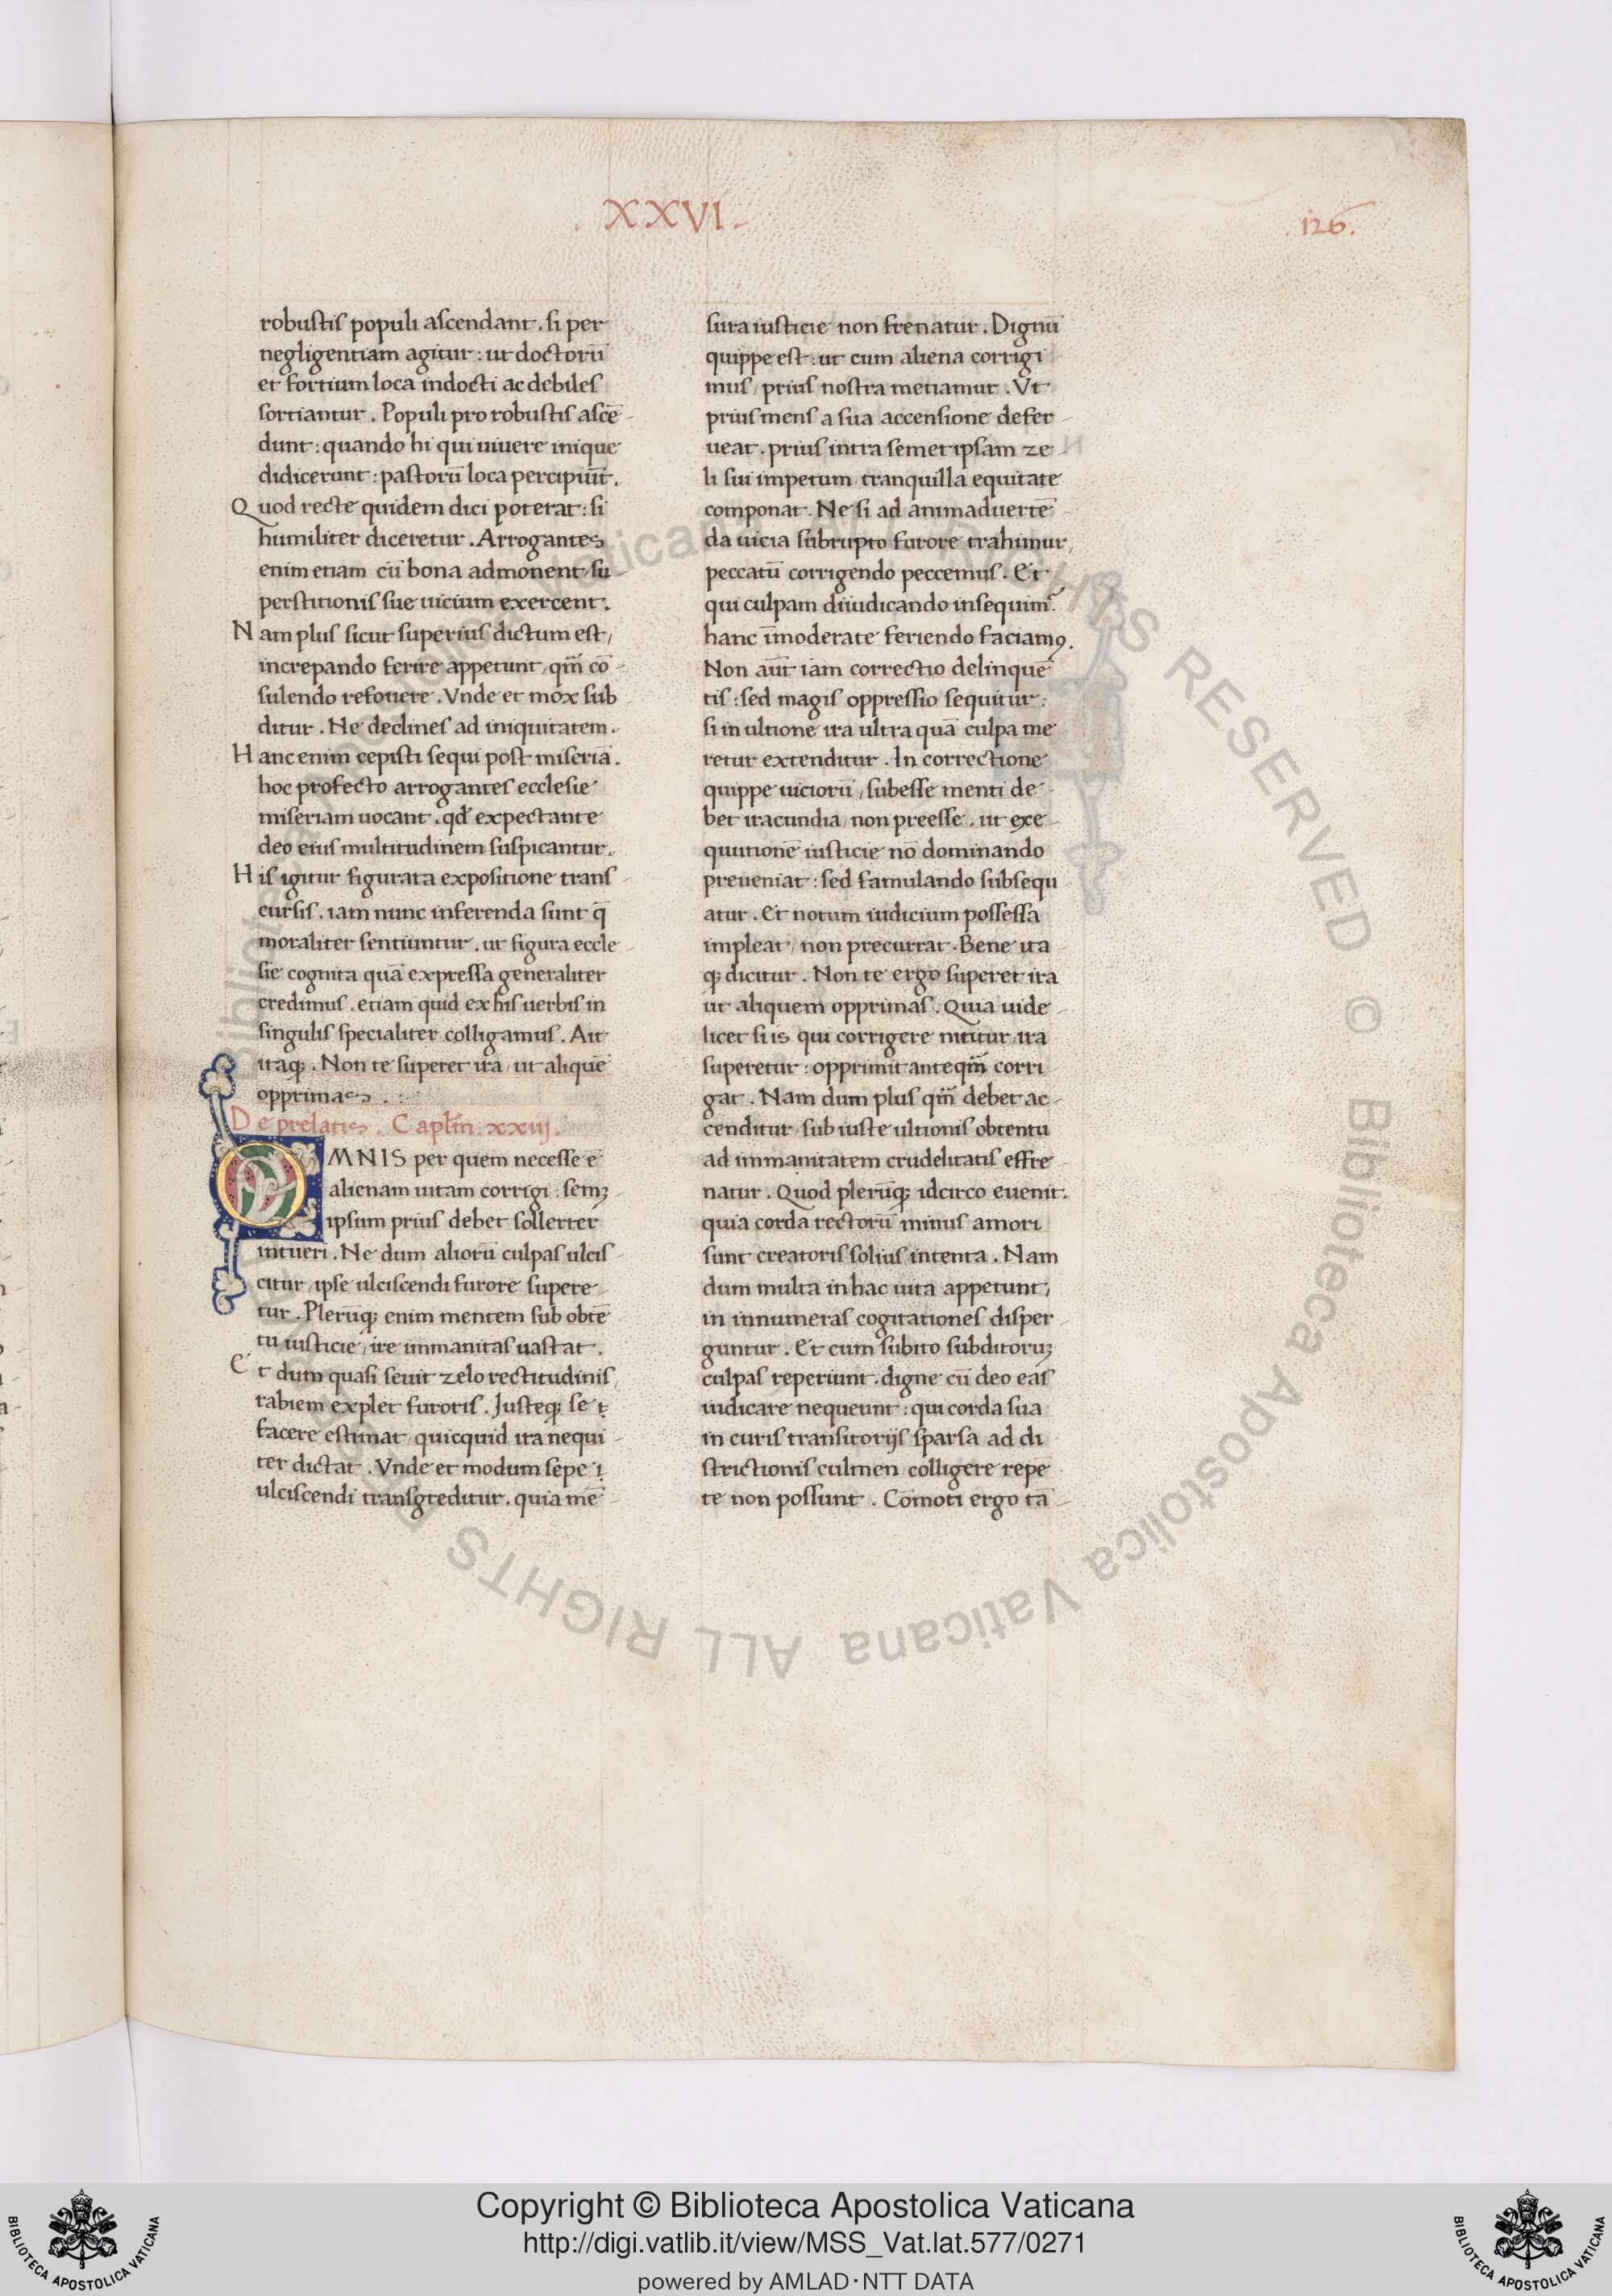 . XXVI .
. 126 .
robustis populi ascendant . si per
negligentiam agitur : ut doctorū
et fortium loca indocti ac debiles
sortiantur . Populi pro robustis ascē-
dunt : quando hi qui uiuere inique
didicerunt : pastorū loca percipiūt .
Quod recte quidem dici poterat : si
humiliter diceretur . Arrogantes
enim etiam cū bona admonent / su-
perstitionis sue uicium exercent .
Nam plus sicut superius dictum est /
increpando ferire appetunt / qm̄ cō-
sulendo refouere . Vnde et mox sub
ditur . Ne declines ad iniquitatem .
Hanc enim cepisti sequi post miseriā .
hoc profecto arrogantes ecclesie
miseriam uocant . qd̄ expectante
deo eius multitudinem suspicantur .
His igitur figurata expositione trans-
cursis . iam nunc inferenda sunt q̄
moraliter sentiuntur . ut figura eccle
sie cognita quā expressa generaliter
credimus . etiam quid ex his uerbis in
singulis specialiter colligamus . Ait
itaqꝫ . Non te superet ira / ut aliquē
opprimas . :
De prelatis . Capl̄m . xxiij .
OMNIS per quem necesse ē
alienam uitam corrigi : semꝫ
ipsum prius debet sollerter
intueri . Ne dum aliorū culpas ulcis-
citur / ipse ulciscendi furore supere-
tur . Plerūqꝫ enim mentem sub obtē
tu iusticie / ire immanitas uastat .
Et dum quasi seuit zelo rectitudinis /
rabiem explet furoris . Justeqꝫ se
facere estimat / quicquid ira nequi-
ter dictat . Vnde et modum sepe
ulciscendi transgreditur . quia mē-
sura iusticie non frenatur . Dignū
quippe est : ut cum aliena corrigi-
mus / prius nostra metiamur . Vt
prius mens a sua accensione defer-
ueat . prius intra semet ipsam ze-
li sui impetum / tranquilla equitate
componat . Ne si ad animaduertē-
da uicia subrupto furore trahimur /
peccatū corrigendo peccemus . Et
qui culpam diiudicando insequim̃ .
hanc īmoderate feriendo faciamꝯ .
Non aūt iam correctio delinquē-
tis : sed magis oppressio sequitur :
si in ultione ira ultra quā culpa me-
retur extenditur . In correctione
quippe uiciorū / subesse menti de-
bet iracundia / non preesse . ut exe-
quutionē iusticie nō dominando
preueniat : sed famulando subsequ
atur . Et notum iudicium possessa
impleat / non precurrat . Bene ita-
qꝫ dicitur . Non te ergo superet ira
ut aliquem opprimas . Quia uide-
licet si is qui corrigere nititur / ira
superetur : opprimit anteqm̄ corri
gat . Nam dum plus qm̄ debet ac-
cenditur / sub iuste ultionis obtentu
ad immanitatem crudelitatis effre-
natur . Quod plerūqꝫ idcirco euenit .
quia corda rectorū minus amori
sunt creatoris solius intenta . Nam
dum multa in hac uita appetunt /
in innumeras cogitationes disper-
guntur . Et cum subito subditoruꝫ
culpas reperiunt . digne cū deo eas
iudicare nequeunt : qui corda sua
in curis transitorijs sparsa ad di-
strictionis culmen colligere repe-
te non possunt . Cōmoti ergo tā-
Biblioteca Apostolica Vaticana ALL RIGHTS RESERVED © Biblioteca Apostolica Vaticana ALL RIGHTS RESERVED
Copyright © Biblioteca Apostolica Vaticana
http://digi.vatlib.it/view/MSS_Vat.lat.577/0271
powered by AMLAD·NTT DATA
BIBLIOTECA APOSTOLICA VATICANA
BIBLIOTECA APOSTOLICA VATICANA